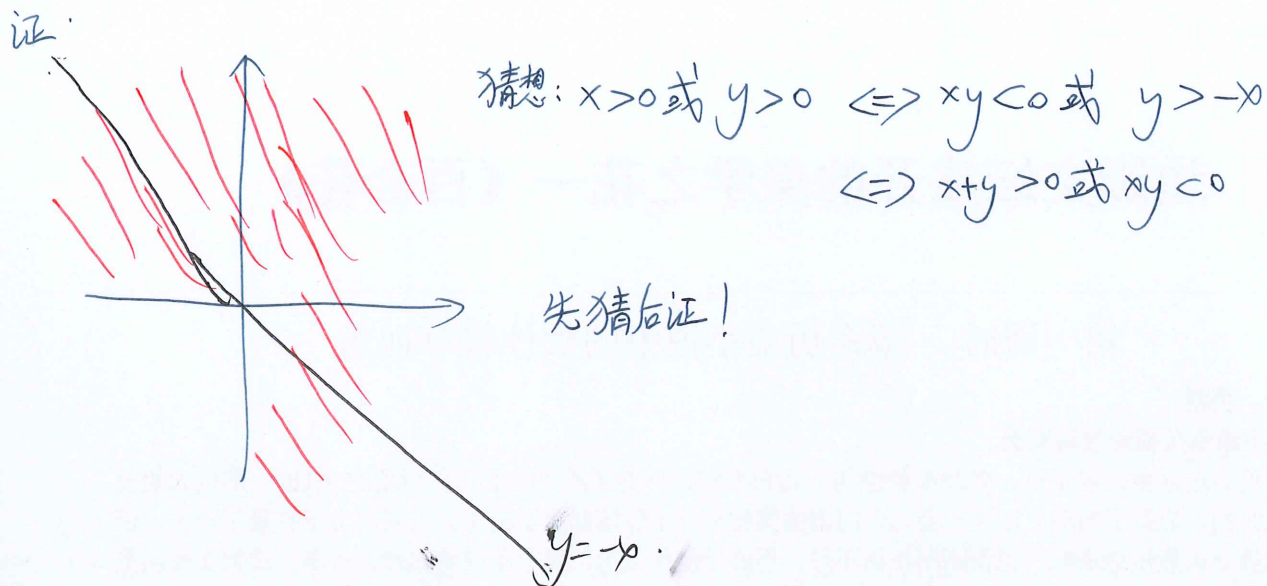 证.
猜想: x>0或 y>0 <=> xy<0或 y>-x
<=> x+y>0或 xy<0
先猜后证!
y=-x.